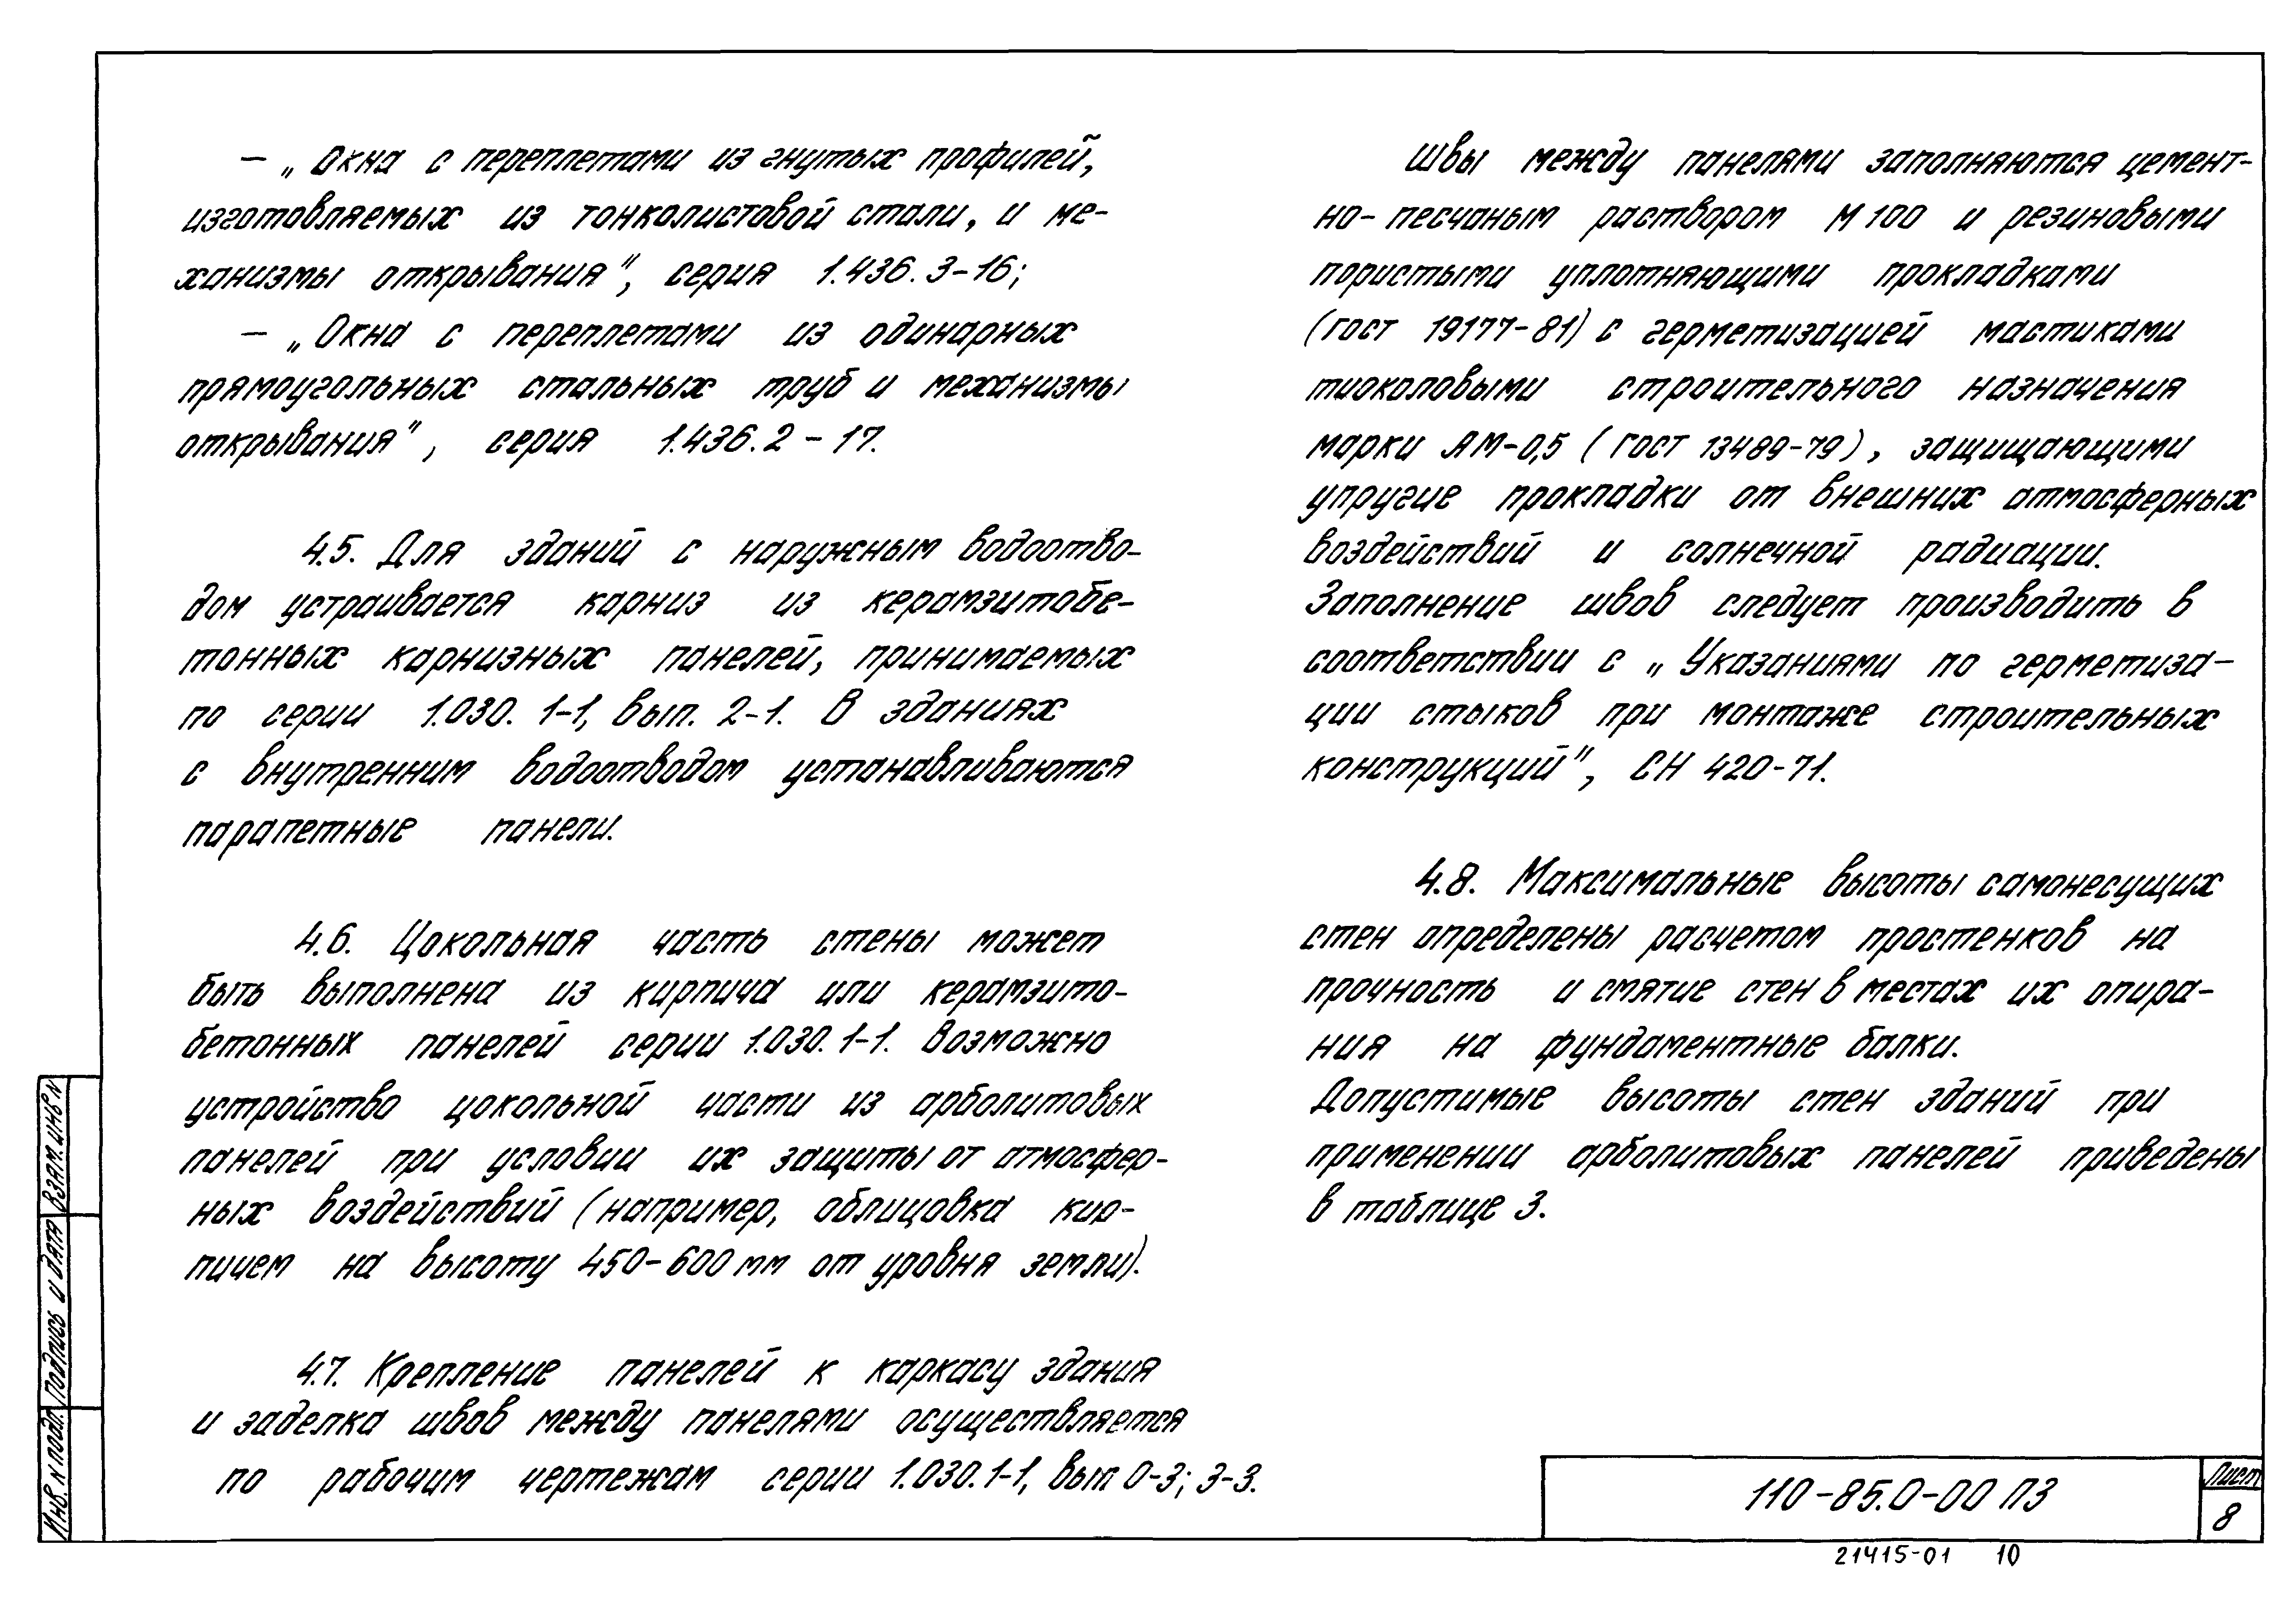 – „Окна с переплетами из гнутых профилей,
изготовляемых из тонколистовой стали, и ме-
ханизмы открывания", серия 1.436.3-16;
– „Окна с переплетами из одинарных
прямоугольных стальных труб и механизмы
открывания", серия 1.436.2-17.
4.5. Для зданий с наружным водоотво-
дом устраивается карниз из керамзитобе-
тонных карнизных панелей, принимаемых
по серии 1.030.1-1, вып. 2-1. В зданиях
с внутренним водоотводом устанавливаются
парапетные панели.
4.6. Цокольная часть стены может
быть выполнена из кирпича или керамзито-
бетонных панелей серии 1.030.1-1. Возможно
устройство цокольной части из арболитовых
панелей при условии их защиты от атмосфер-
ных воздействий (например, облицовка кир-
пичем на высоту 450-600 мм от уровня земли).
4.7. Крепление панелей к каркасу здания
и заделка швов между панелями осуществляется
по рабочим чертежам серии 1.030.1-1, вып 0-3; 3-3.
Швы между панелями заполняются цемент-
но-песчаным раствором М 100 и резиновыми
пористыми уплотняющими прокладками
(ГОСТ 19177-81) с герметизацией мастиками
тиоколовыми строительного назначения
марки АМ-0,5 (ГОСТ 13489-79), защищающими
упругие прокладки от внешних атмосферных
воздействий и солнечной радиации.
Заполнение швов следует производить в
соответствии с „Указаниями по герметиза-
ции стыков при монтаже строительных
конструкций", СН 420-71.
4.8. Максимальные высоты самонесущих
стен определены расчетом простенков на
прочность и смятие стен в местах их опира-
ния на фундаментные балки.
Допустимые высоты стен зданий при
применении арболитовых панелей приведены
в таблице 3.
Взам. инв N
Подпись и дата
Инв. N подл.
110-85.0-00 ПЗ
Лист
8
21415-01 10